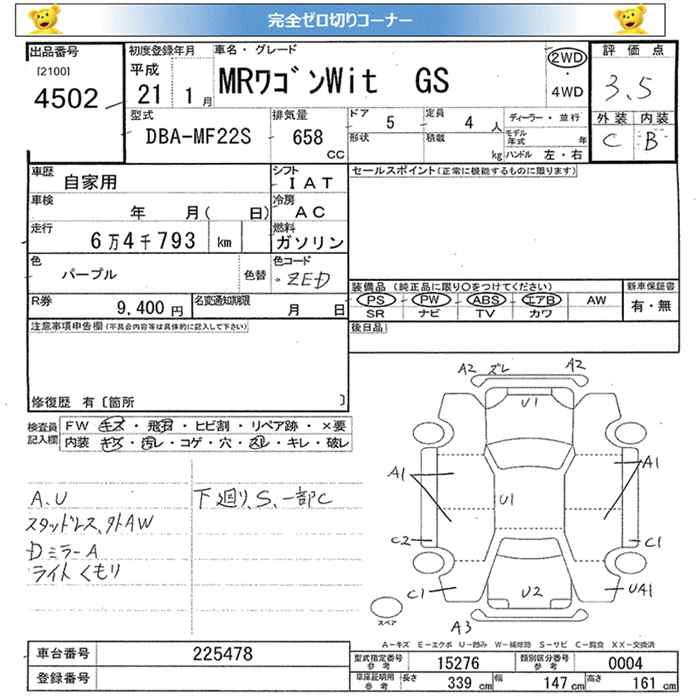 完全ゼロ切りコーナー
出品番号
[2100]
4502
初度登録年月
平成
21 1月
車名・グレード
MRワゴンWit GS
2WD
・
4WD
評価点
3.5
外装 内装
C B
型式
DBA-MF22S
排気量
658
CC
ドア
5
定員
4 人
形状
積載
kg
ディーラー・並行
モデル年式 年
ハンドル 左・右
車歴
自家用
シフト
IAT
車検
年 月( 日)
冷房
AC
走行
6万4千793 km
燃料
ガソリン
色
パープル
色替
色コード
ZED
R券
9,400円
名変通知期限
月 日
セールスポイント(正常に機能するものに限ります)
装備品 (純正品に限り○をつけてください)
PS PW ABS エアB AW
SR ナビ TV カワ
新車保証書
有・無
後日品
注意事項申告欄(不具合内容等は具体的に記入して下さい)
修復歴 有〔箇所 〕
検査員記入欄
FW キズ・飛石・ヒビ割・リペア跡・×要
内装 キズ・汚レ・コゲ・穴・スレ・キレ・破レ
A、U
スタッドレス、外AW
DミラーA
ライトくもり
下廻り、S、一部C
A2 ズレ A2
U1
A1
A1
U1
C2
C1
C1
U2
UA1
A3
スペア
A−キズ E−エクボ U−凹み W−補修跡 S−サビ C−腐食 XX−交換済
車台番号
225478
登録番号
型式指定番号
参考
15276
類別区分番号
参考
0004
車庫証明用
参考
長さ 339 cm
幅 147 cm
高さ 161 cm